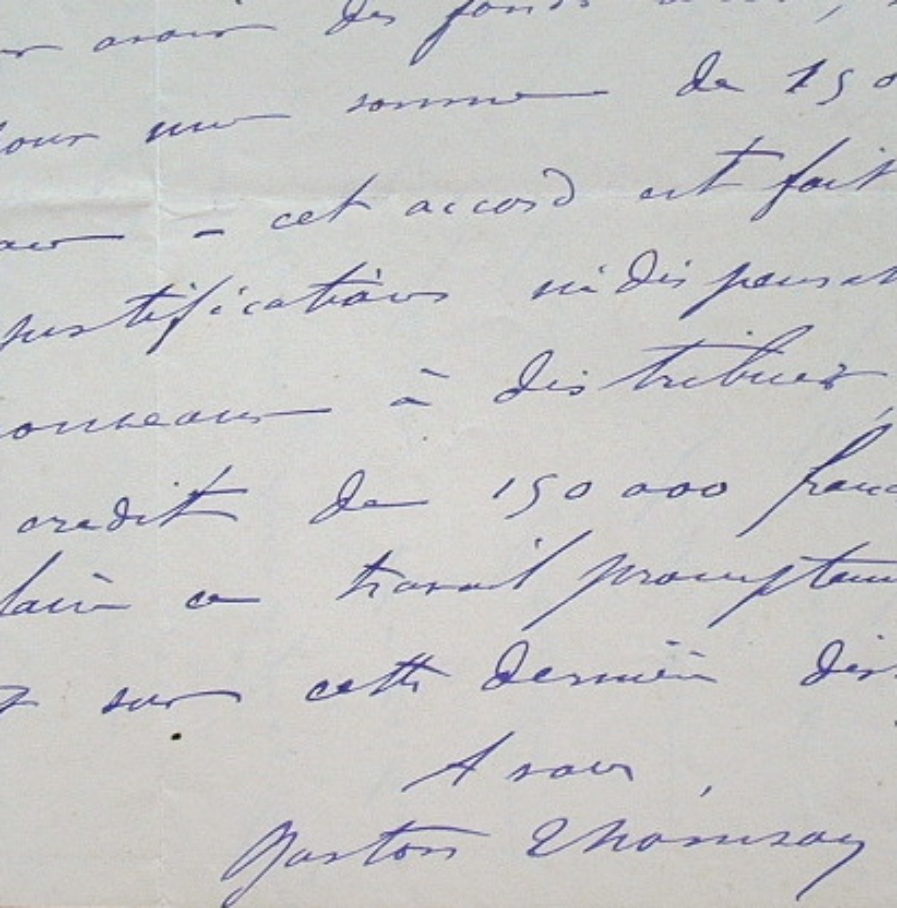 avoir des fonds
pour une somme de 150
- cet accord est fait
justifications indispensab
à distribuer,
credit de 150 000 franc
ce travail promptem
sur cette dernière dis
A vous,
Gaston Thomson